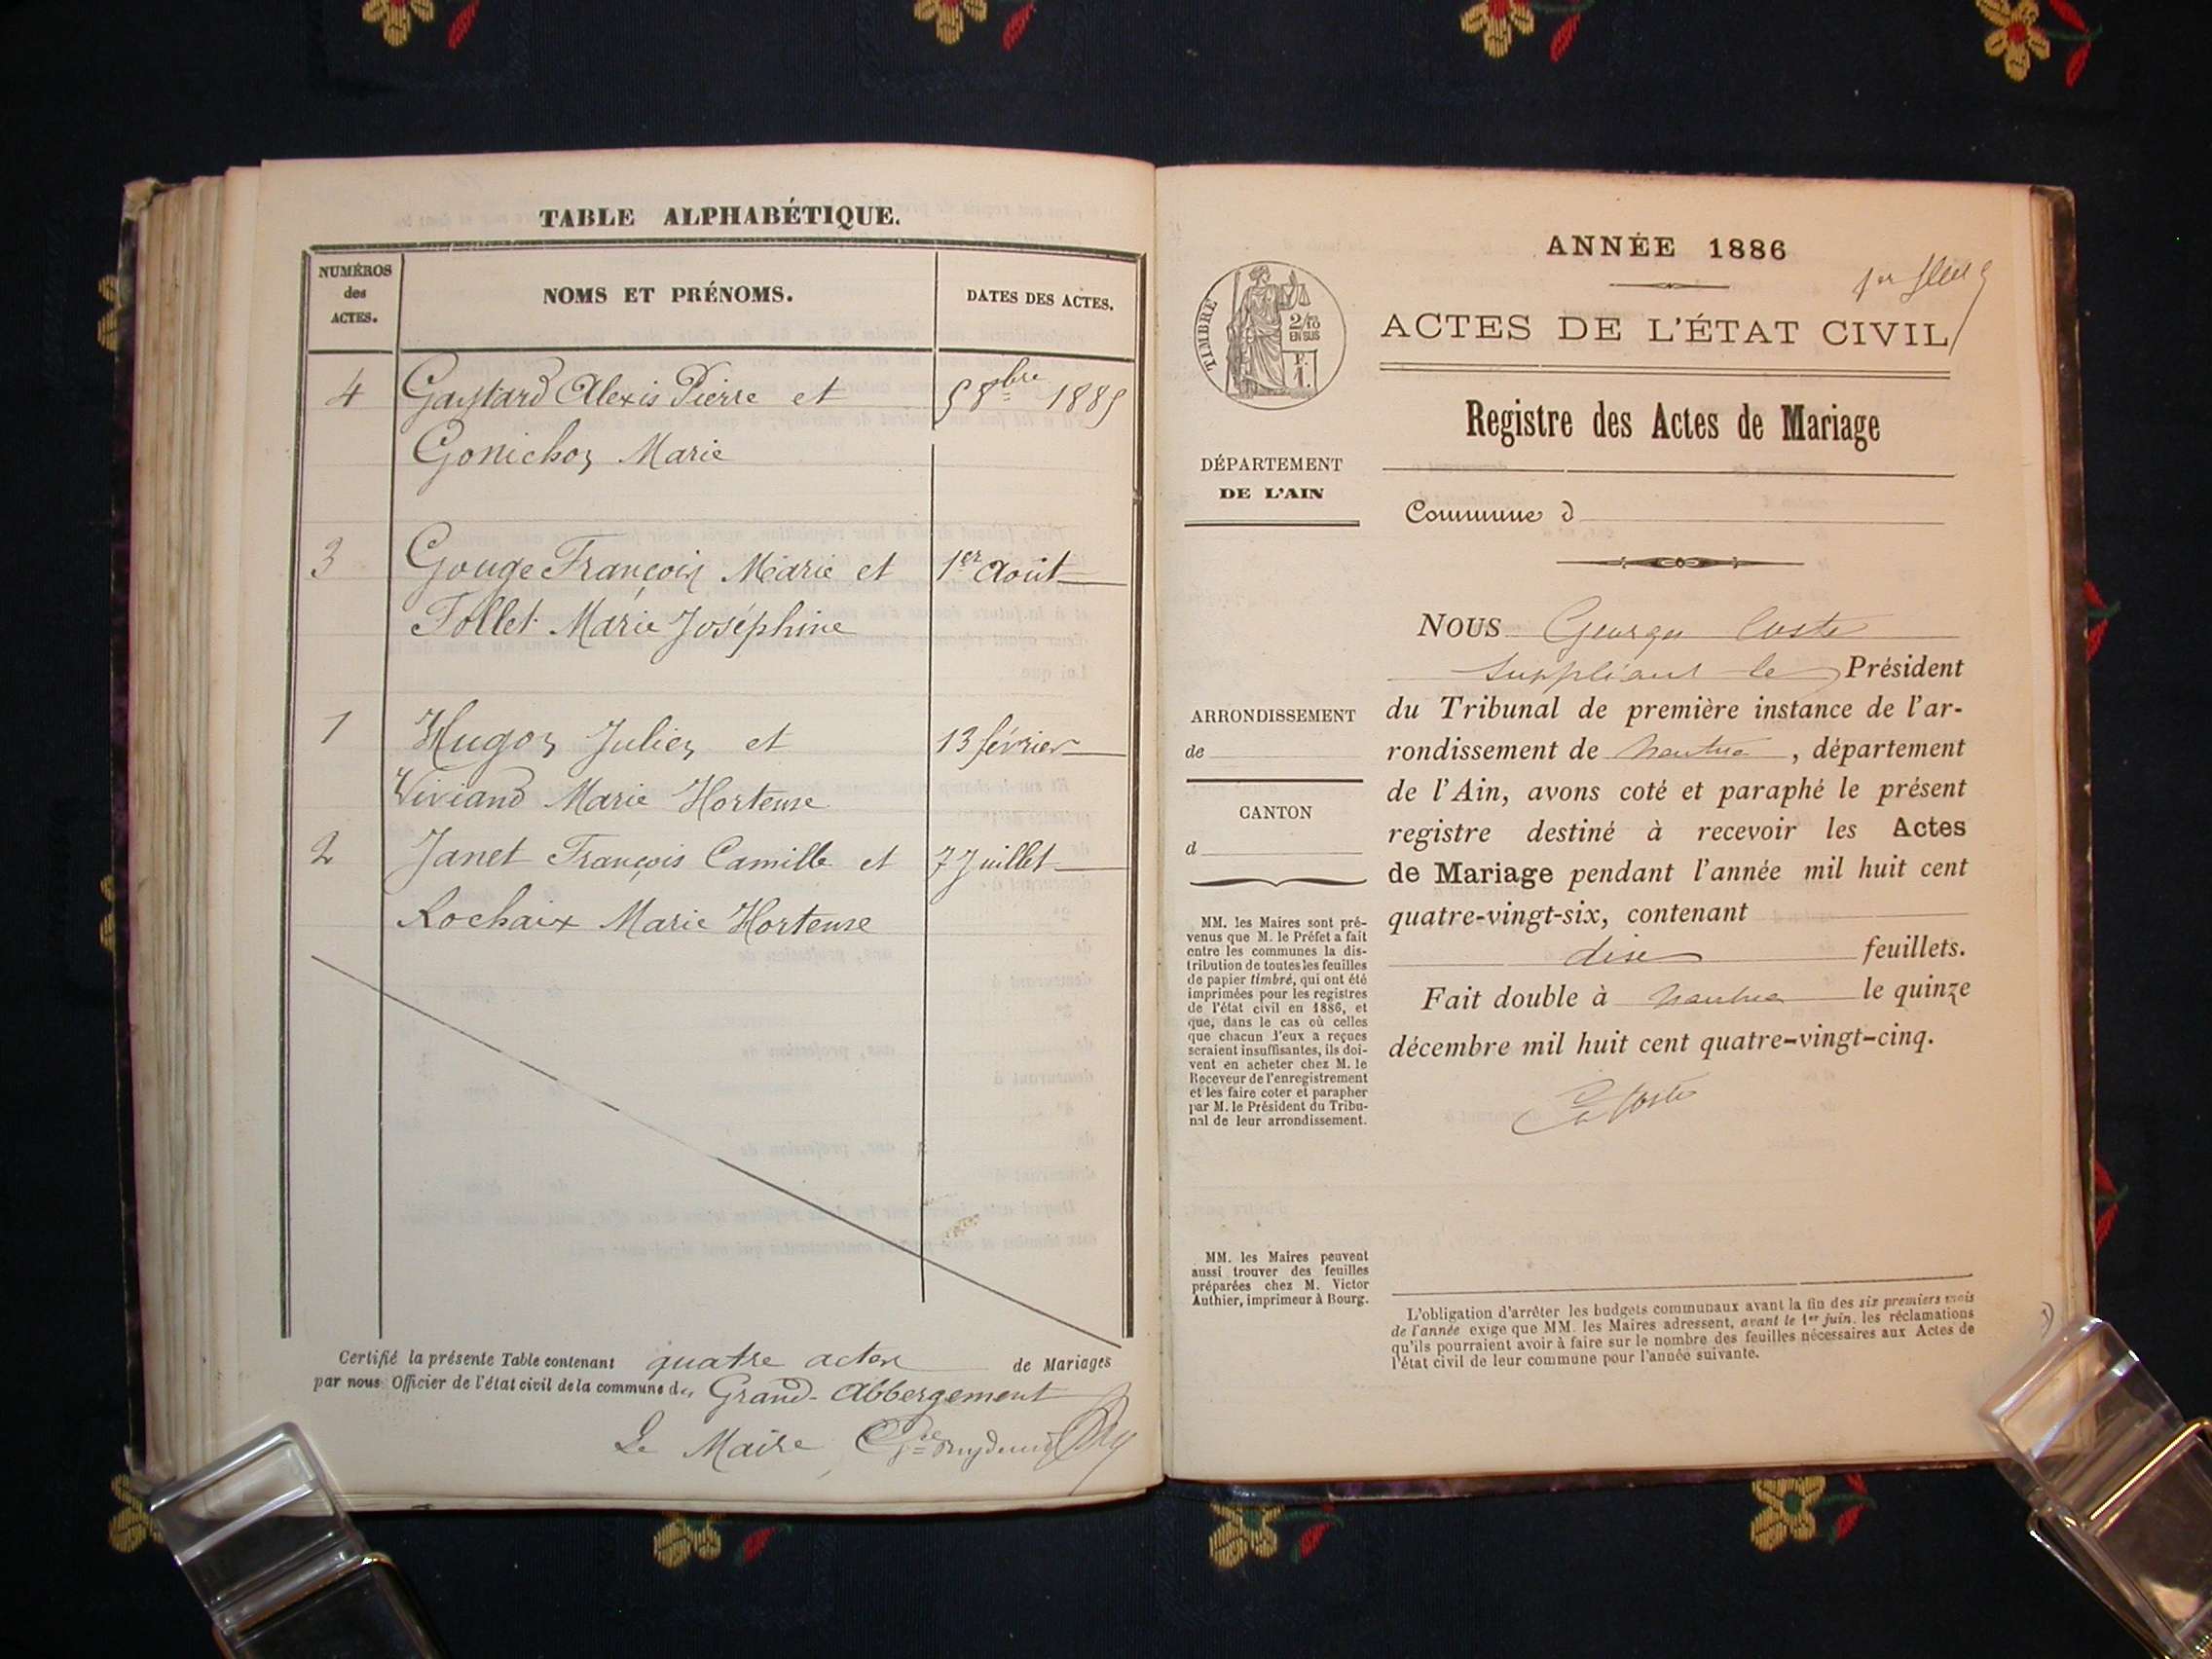 TABLE ALPHABÉTIQUE.
NUMÉROS des ACTES.
NOMS ET PRÉNOMS.
DATES DES ACTES.
4 Gaystard Alexis Pierre et 5 8bre 1885
Gonichon Marie
3 Gouge François Marie et 1er Août
Follet Marie Joséphine
1 Hugon Julien et 13 février
Viviand Marie Hortense
2 Janet François Camille et 7 Juillet
Rochaix Marie Hortense
Certifié la présente Table contenant quatre actes de Mariages
par nous Officier de l'état civil de la commune du Grand-Abbergement
Le Maire
ANNÉE 1886
1er
ACTES DE L'ÉTAT CIVIL
TIMBRE
2/10
EN SUS
F.
1.
Registre des Actes de Mariage
DÉPARTEMENT
DE L'AIN
Commune d
NOUS Georges Coste
suppléant le Président
du Tribunal de première instance de l'ar-
rondissement de Nantua, département
de l'Ain, avons coté et paraphé le présent
registre destiné à recevoir les Actes
de Mariage pendant l'année mil huit cent
quatre-vingt-six, contenant
dix feuillets.
Fait double à Nantua le quinze
décembre mil huit cent quatre-vingt-cinq.
Coste
ARRONDISSEMENT
de
CANTON
d
MM. les Maires sont pré-
venus que M. le Préfet a fait
entre les communes la dis-
tribution de toutes les feuilles
de papier timbré, qui ont été
imprimées pour les registres
de l'état civil en 1886, et
que, dans le cas où celles
que chacun d'eux a reçues
seraient insuffisantes, ils doi-
vent en acheter chez M. le
Receveur de l'enregistrement
et les faire coter et parapher
par M. le Président du Tribu-
nal de leur arrondissement.
MM. les Maires peuvent
aussi trouver des feuilles
préparées chez M. Victor
Authier, imprimeur à Bourg.
L'obligation d'arrêter les budgets communaux avant la fin des six premiers mois
de l'année exige que MM. les Maires adressent, avant le 1er juin, les réclamations
qu'ils pourraient avoir à faire sur le nombre des feuilles nécessaires aux Actes de
l'état civil de leur commune pour l'année suivante.